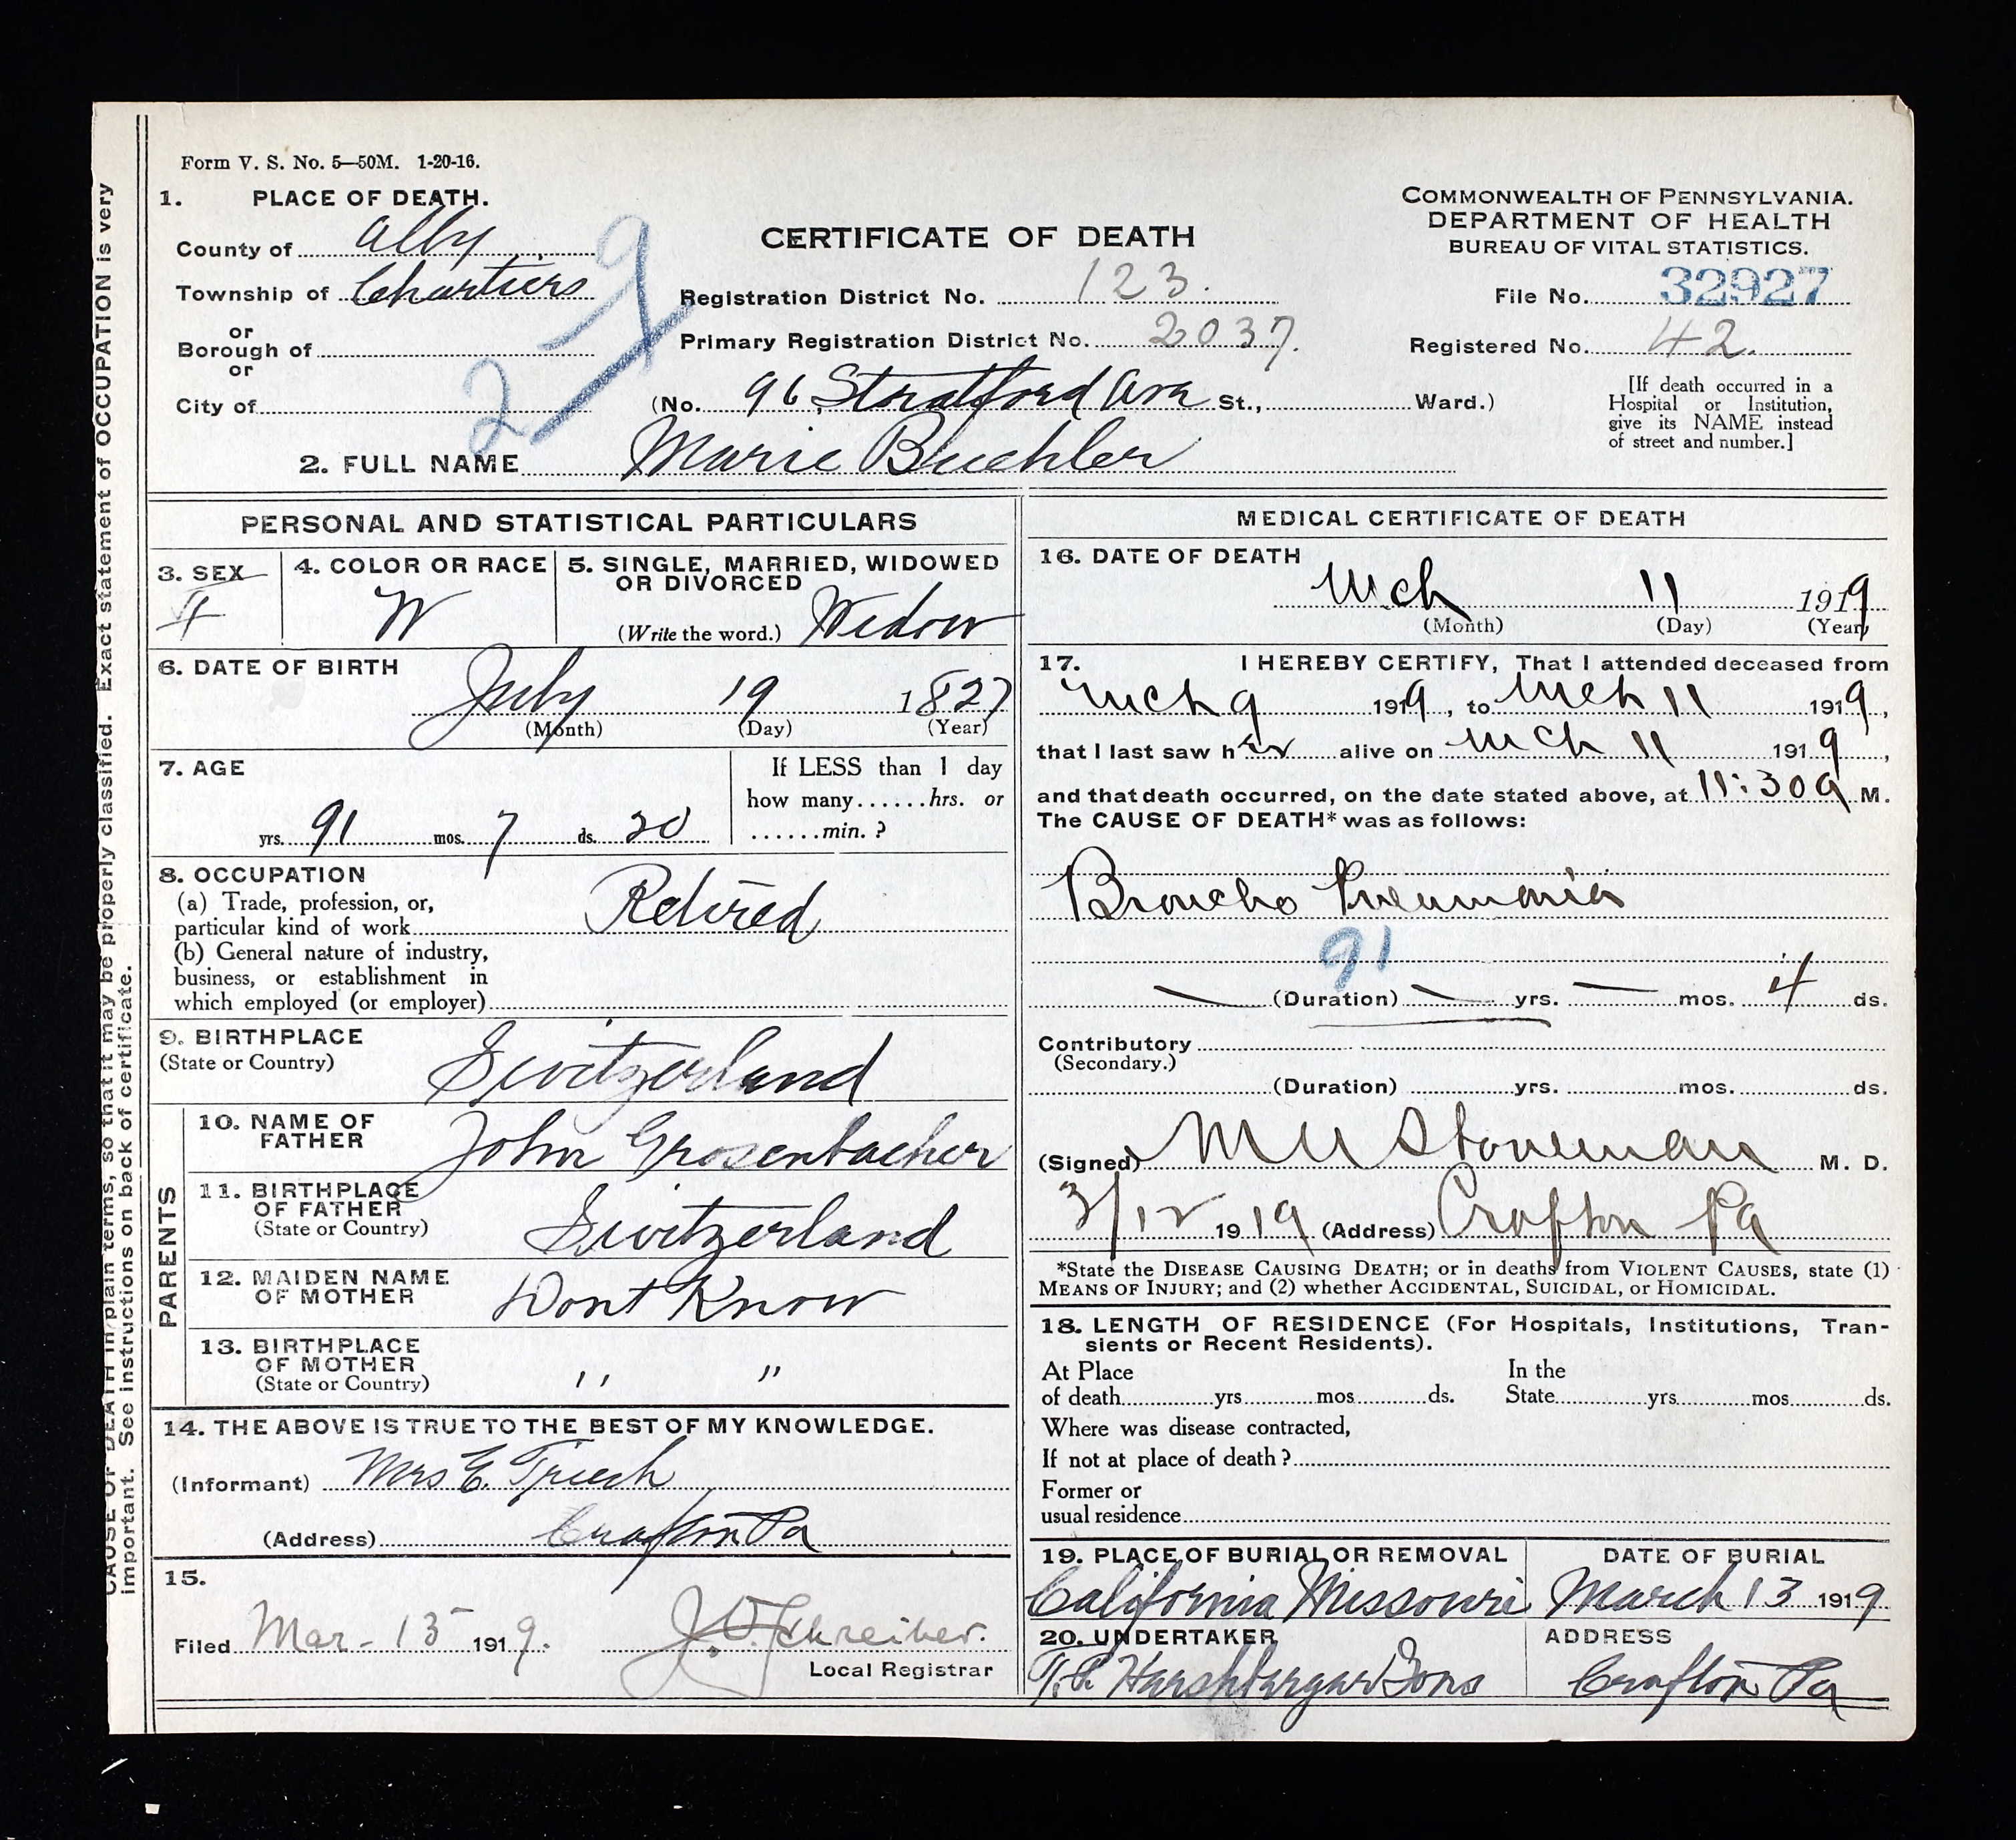 Form V. S. No. 5—50M. 1-20-16.
1. PLACE OF DEATH.
County of Alby
Township of Chartiers
or
Borough of
or
City of
29
CERTIFICATE OF DEATH
Registration District No. 123.
Primary Registration District No. 2037.
(No. 96, Stratford Ave St., Ward.)
COMMONWEALTH OF PENNSYLVANIA.
DEPARTMENT OF HEALTH
BUREAU OF VITAL STATISTICS.
File No. 32927
Registered No. 42.
[If death occurred in a
Hospital or Institution,
give its NAME instead
of street and number.]
2. FULL NAME Marie Buehler
PERSONAL AND STATISTICAL PARTICULARS
3. SEX
f
4. COLOR OR RACE
W
5. SINGLE, MARRIED, WIDOWED
OR DIVORCED
(Write the word.) Widow
6. DATE OF BIRTH
July 19 1827
(Month) (Day) (Year)
7. AGE
yrs. 91 mos. 7 ds. 20
If LESS than 1 day
how many......hrs. or
......min. ?
8. OCCUPATION
(a) Trade, profession, or,
particular kind of work Retired
(b) General nature of industry,
business, or establishment in
which employed (or employer)
9. BIRTHPLACE
(State or Country) Switzerland
PARENTS
10. NAME OF
FATHER John Grosenbacher
11. BIRTHPLACE
OF FATHER
(State or Country) Switzerland
12. MAIDEN NAME
OF MOTHER Dont Know
13. BIRTHPLACE
OF MOTHER
(State or Country) " "
14. THE ABOVE IS TRUE TO THE BEST OF MY KNOWLEDGE.
(Informant) Mrs E.
(Address) Crafton Pa
15.
Filed Mar - 13 1919. Schreiber.
Local Registrar
MEDICAL CERTIFICATE OF DEATH
16. DATE OF DEATH
Mch 11 1919
(Month) (Day) (Year)
17. I HEREBY CERTIFY, That I attended deceased from
Mch 9 1919, to Mch 11 1919,
that I last saw her alive on Mch 11 1919,
and that death occurred, on the date stated above, at 11:30 a M.
The CAUSE OF DEATH* was as follows:
Broncho Pneumonia
91
(Duration) — yrs. — mos. 4 ds.
Contributory
(Secondary.)
(Duration) yrs. mos. ds.
(Signed) Stoneman M. D.
3/12 1919 (Address) Crafton Pa
*State the DISEASE CAUSING DEATH; or in deaths from VIOLENT CAUSES, state (1)
MEANS OF INJURY; and (2) whether ACCIDENTAL, SUICIDAL, or HOMICIDAL.
18. LENGTH OF RESIDENCE (For Hospitals, Institutions, Tran-
sients or Recent Residents).
At Place In the
of death yrs mos ds. State yrs mos ds.
Where was disease contracted,
If not at place of death?
Former or
usual residence
19. PLACE OF BURIAL OR REMOVAL
California Missouri
DATE OF BURIAL
March 13 1919
20. UNDERTAKER
Harshbarger Sons
ADDRESS
Crafton Pa
Exact statement of OCCUPATION is very
CAUSE OF DEATH in plain terms, so that it may be properly classified.
important. See instructions on back of certificate.